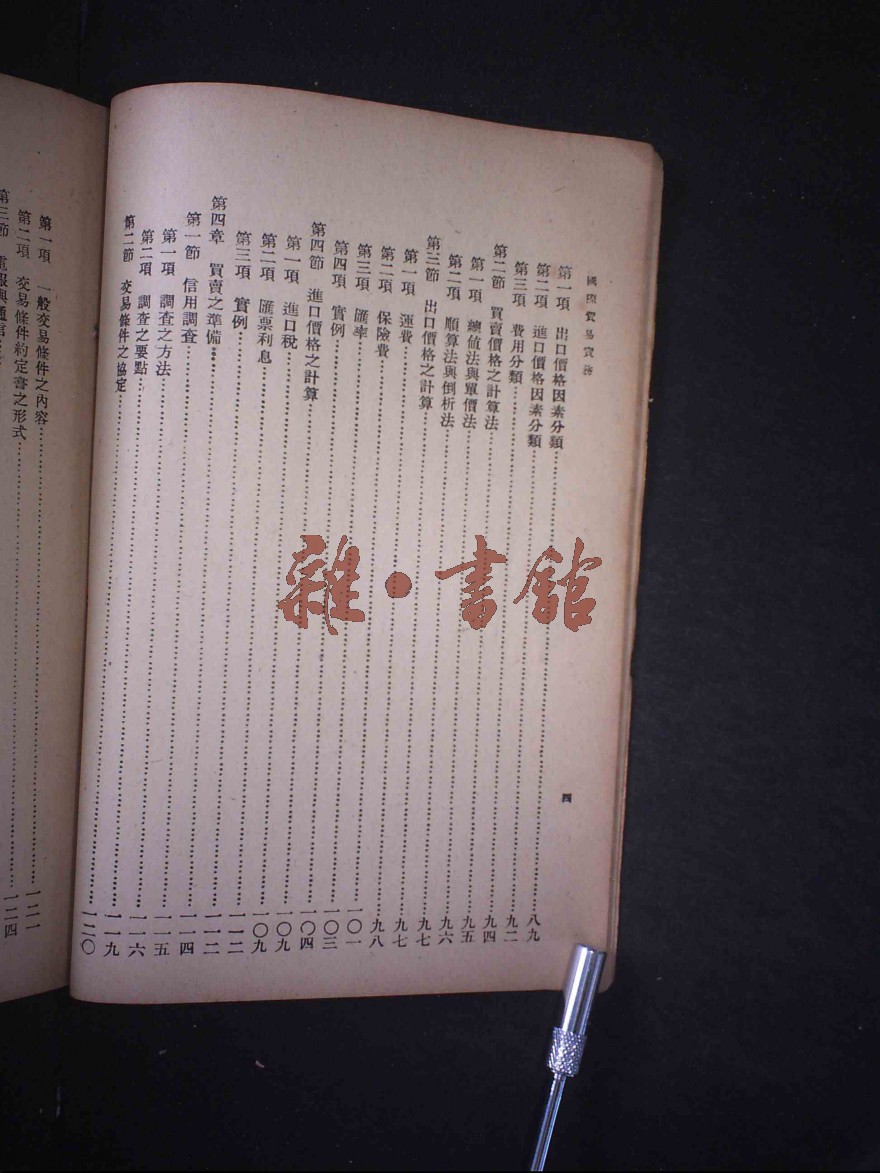 國際貿易實務
第一項 出口價格因素分類……八九
第二項 進口價格因素分類……九二
第三項 費用分類……九四
第二節 買賣價格之計算法……九五
第一項 總値法與單價法……九六
第二項 順算法與倒析法……九七
第三節 出口價格之計算……九七
第一項 運費……九八
第二項 保險費……一〇一
第三項 匯率……一〇三
第四項 實例……一〇四
第四節 進口價格之計算……一〇九
第一項 進口稅……一〇九
第二項 匯票利息……一一二
第三項 實例……一一二
第四章 買賣之準備……一一四
第一節 信用調查……一一五
第一項 調查之方法……一一六
第二項 調查之要點……一一九
第二節 交易條件之協定……一二〇
四
第一項 一般交易條件之內容……一二一
第二項 交易條件約定書之形式……一二四
第三節 電報與通信
雜·書館